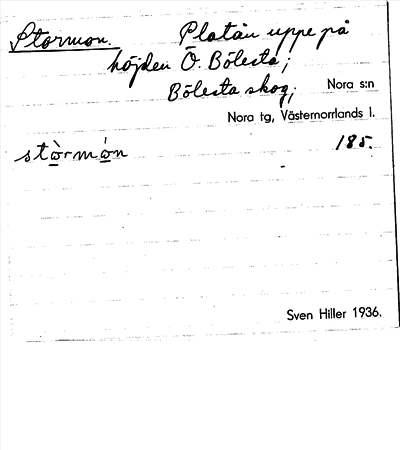 Stormon. Platån uppe på
höjden Ö. Bölesta;
Bölesta skog; Nora s:n
Nora tg, Västernorrlands l.
stòrmón 185.
Sven Hiller 1936.